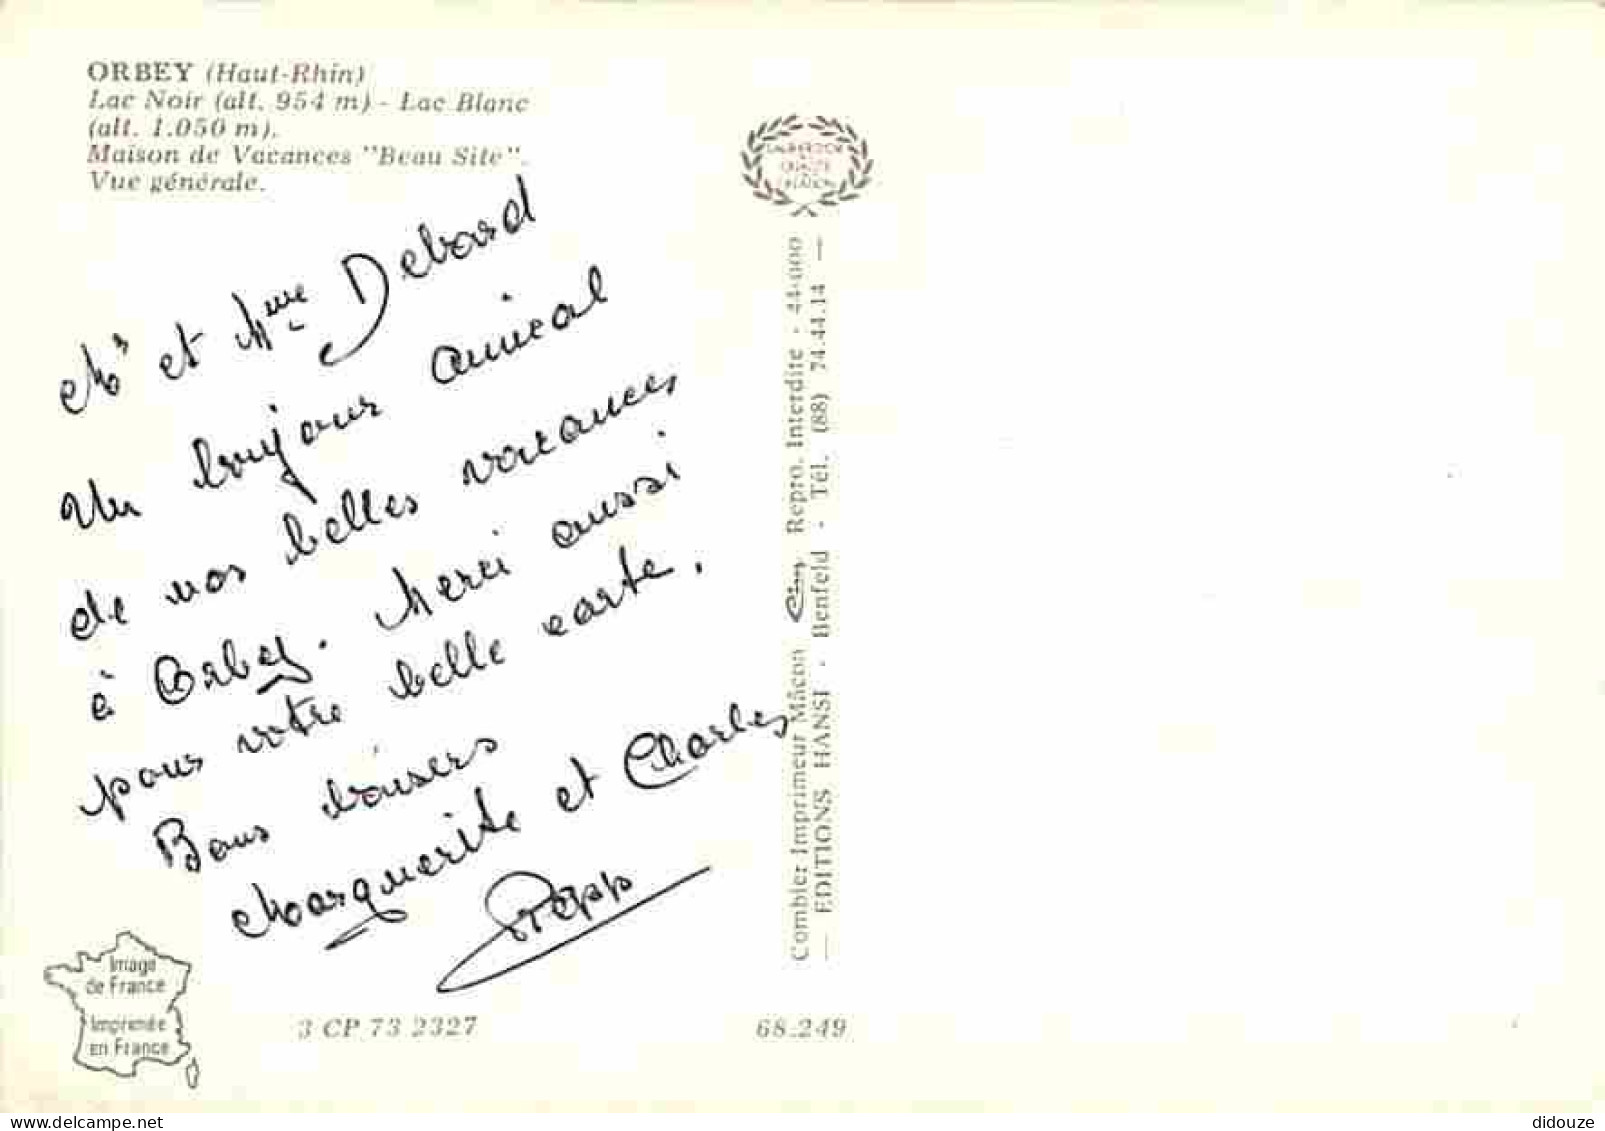 ORBEY (Haut-Rhin)
Lac Noir (alt. 954 m) - Lac Blanc
(alt. 1.050 m).
Maison de Vacances "Beau Site".
Vue générale.
Mr et Mme Debard
Un bonjour amical
de nos belles vacances
à Orbey. Merci aussi
pour votre belle carte.
Bons baisers
Marguerite et Charles
Image
de France
Imprimée
en France
3 CP 73 2327
68.249
Combier Imprimeur Mâcon Cim Repro. Interdite - 44-000
— EDITIONS HANSI - Benfeld - Tél. (88) 74.44.14 —
didouze